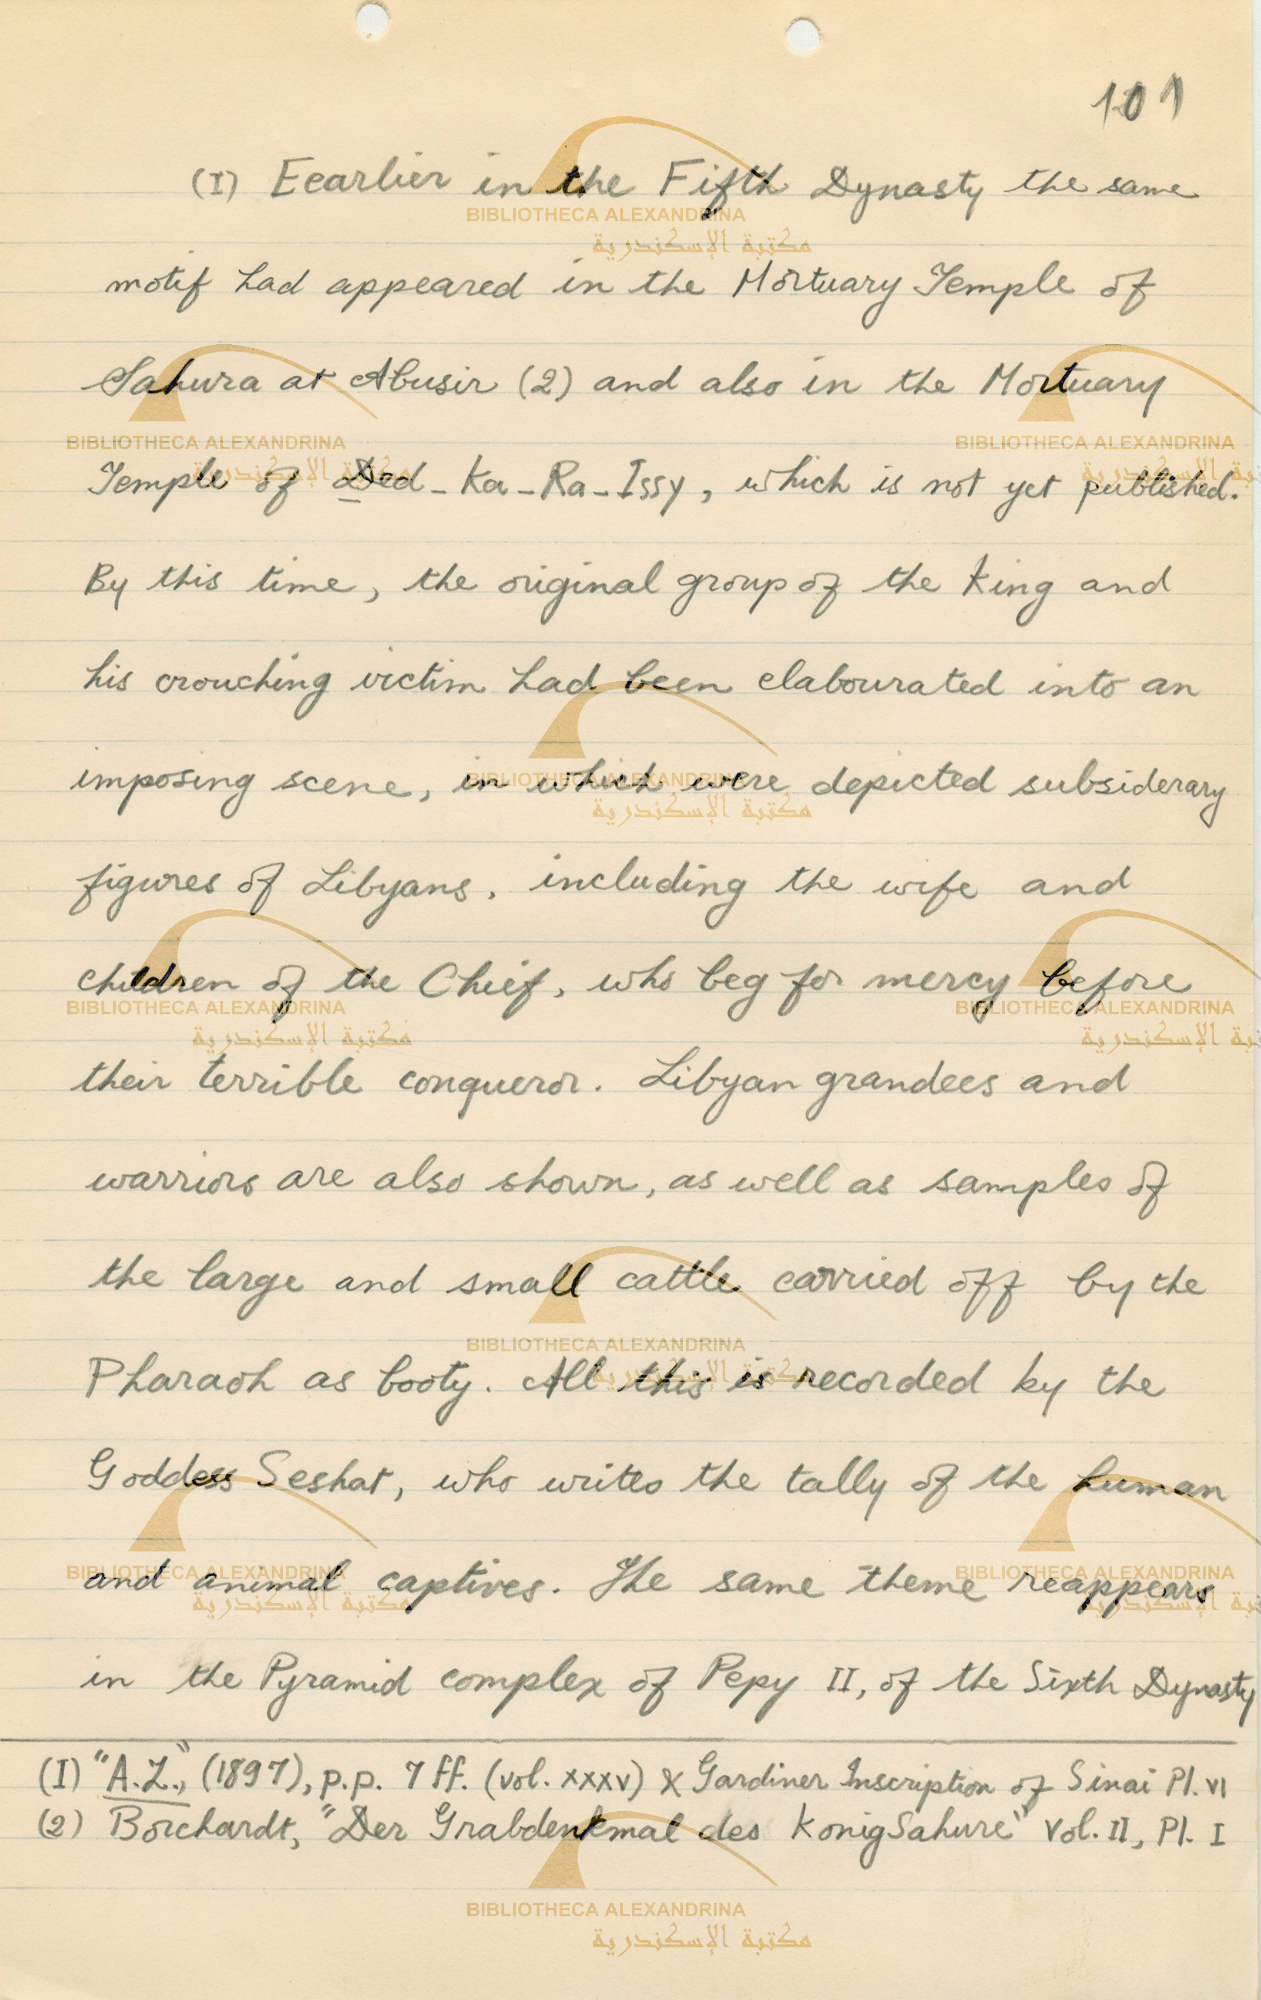 101
(I) Eearlier in the Fifth Dynasty the same
motif had appeared in the Mortuary Temple of
Sahura at Abusir (2) and also in the Mortuary
Temple of Ded-Ka-Ra-Issy, which is not yet published.
By this time, the original group of the King and
his crouching victim had been elabourated into an
imposing scene, in which were depicted subsiderary
figures of Libyans, including the wife and
children of the Chief, who beg for mercy before
their terrible conqueror. Libyan grandees and
warriors are also shown, as well as samples of
the large and small cattle carried off by the
Pharaoh as booty. All this is recorded by the
Goddess Seshat, who writes the tally of the human
and animal captives. The same theme reappears
in the Pyramid complex of Pepy II, of the Sixth Dynasty
(I) "A.Z.," (1897), p.p. 7 ff. (vol. xxxv) & Gardiner Inscription of Sinai Pl. VI
(2) Borchardt, "Der Grabdenkmal des Konig Sahure" Vol. II, Pl. I
BIBLIOTHECA ALEXANDRINA
مكتبة الإسكندرية